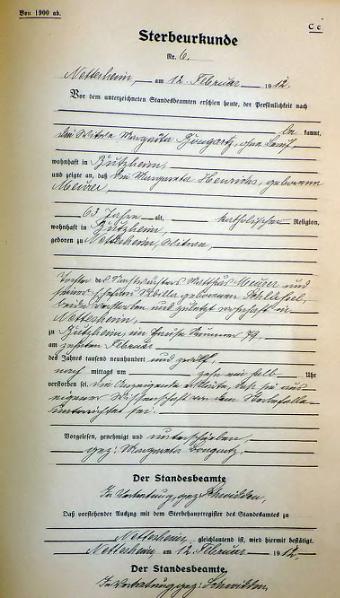 Von 1900 ab.
C c
Sterbeurkunde
Nr. 6.
Nettersheim, am 12. Februar 1912.
Vor dem unterzeichneten Standesbeamten erschien heute, der Persönlichkeit nach
kannt,
die Witwe Margaretha Bongartz, ohne
wohnhaft in
und zeigte an, daß die Margareta Heinrichs, geborenen
Meurer,
63 Jahre alt, katholischer Religion,
wohnhaft in
geboren zu Nettersheim, Witwe,
Tochter des Matthias Meurer und
seiner Ehefrau Sibilla geborenen
beide verstorben und zuletzt wohnhaft in
Nettersheim,
zu im Hause Nummer 79,
am zehnten Februar
des Jahres tausend neunhundert und zwölf
nach mittags um zehn ein halb Uhr
verstorben sei. Die Anzeigende erklärte, daß sie aus
eigener Wissenschaft von dem Sterbefalle
unterrichtet sei.
Vorgelesen, genehmigt und unterschrieben,
gez: Margareta Bongartz.
Der Standesbeamte
In Vertretung, gez.
Daß vorstehender Auszug mit dem Sterbehauptregister des Standesamtes zu
Nettersheim gleichlautend ist, wird hiermit bestätigt.
Nettersheim am 12. Februar 1912.
Der Standesbeamte.
In Vertretung gez: